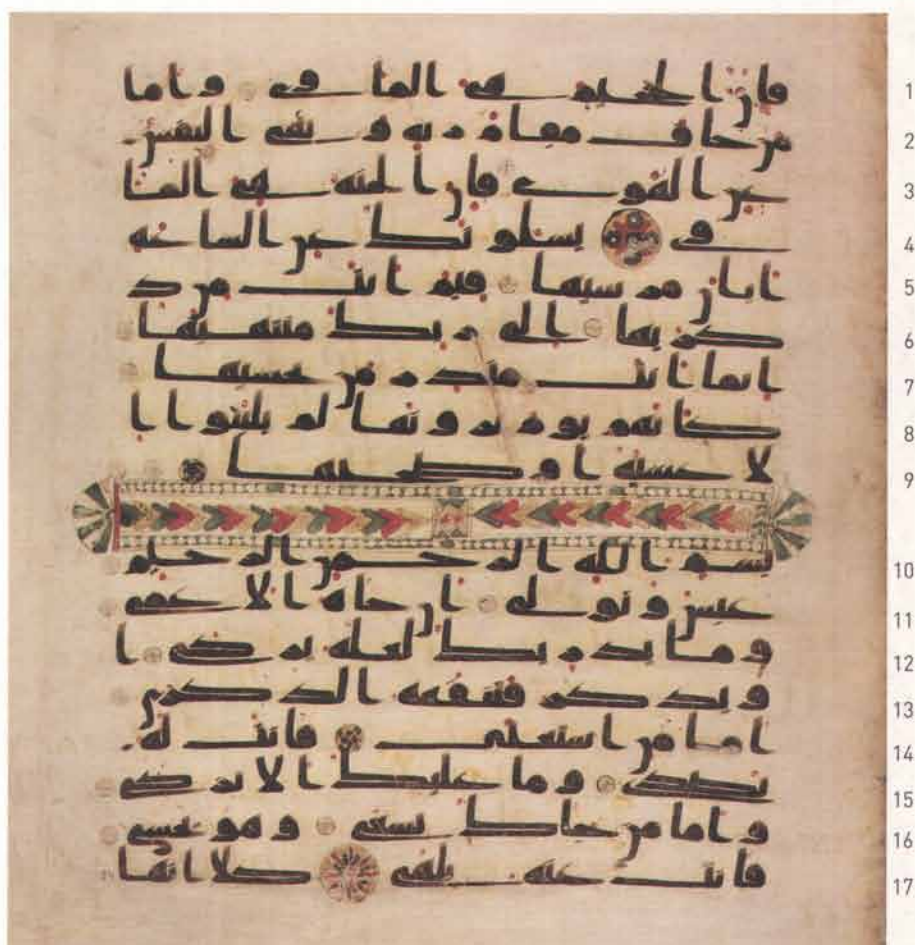 1 فان الجحيم هى الماوى واما
2 من خاف مقام ربه ونهى النفس
3 عن الهوى فان الجنه هى الما
4 وى يسلونك عن الساعه
5 ايان مرسيها فيم انت من ذ
6 كريها الى ربك منتهيها
7 انما انت منذر من يخشيها
8 كانهم يوم يرونها لم يلبثوا ا
9 لا عشيه او ضحيها
10 بسم الله الرحمن الرحيم
11 عبس وتولى ان جاه الاعمى
12 وما يدريك لعله يزكى ا
13 و يذكر فتنفعه الذكرى
14 اما من استغنى فانت له
15 تصدى وما عليك الا يزكى
16 واما من جاك يسعى وهو يخشى
17 فانت عنه تلهى كلا انها